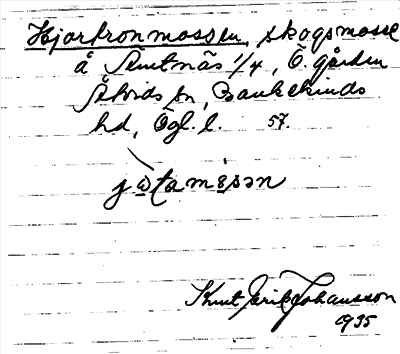 Hjortronmossen, skogsmosse
å Slutnäs 1/4, Ö. gården
Åtvids sn, Bankekinds
hd, Ögl. l. 57.
jωtamɵsən
Knut Erik Johansson
1935